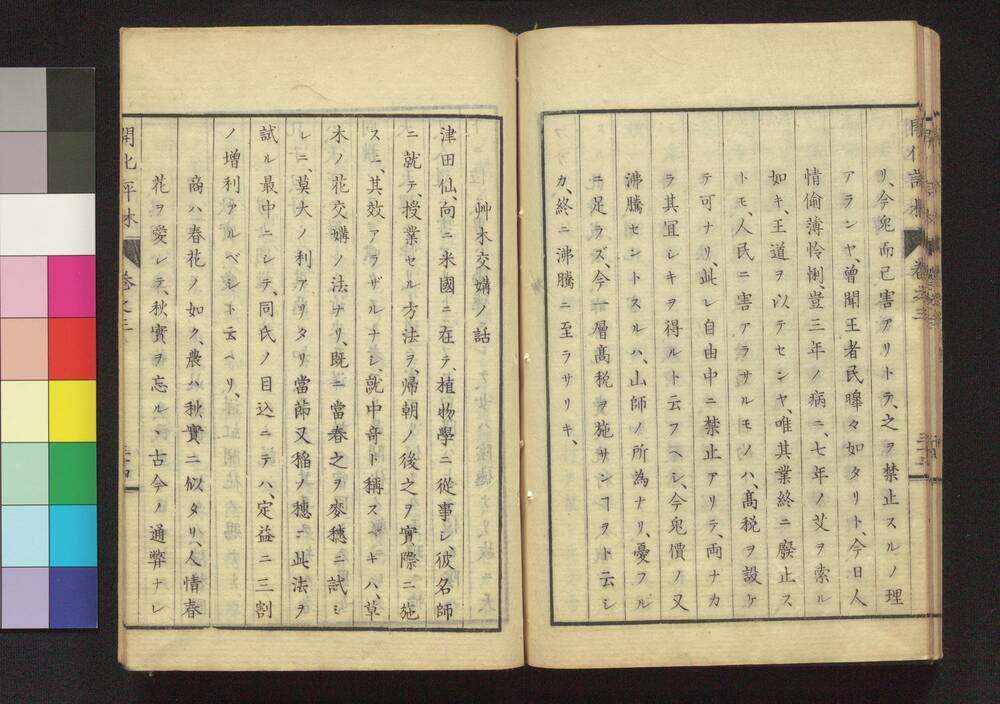 リ、今兎而已害アリトテ、之ヲ禁止スルノ理
アランヤ、曾聞王者民皞々如タリト、今日人
情偷薄怜悧、豈三年ノ病ニ、七年ノ艾ヲ索ル
如キ、王道ヲ以テセンヤ、唯其業終ニ廢止ス
トモ、人民ニ害アラサルモノハ、髙税ヲ設ケ
テ可ナリ、此レ自由中ニ禁止アリテ、両ナカ
ラ其宜シキヲ得ルト云フヘシ、今兎價ノ又
沸騰セントスルハ、山師ノ所為ナリ、憂フル
ニ足ラズ、今一層髙税ヲ施サンヿヲト云シ
カ、終ニ沸騰ニ至ラサリキ、
艸木交媾ノ話
津田仙、向ニ米國ニ在テ、植物學ニ從事シ、彼名師
ニ就テ、授業セル方法ヲ、帰朝ノ後之ヲ實際ニ施
スニ、其效アラザルナシ、就中竒ト稱スベキハ、草
木ノ花交媾ノ法ナリ、既ニ當春之ヲ麥穗ニ試ミ
シニ、莫大ノ利アリタリ當節又稲ノ穗ニ此法ヲ
試ル最中ニシテ、同氏ノ目込ニテハ、定益ニ三割
ノ増利アルベシト云ヘリ、
商ハ春花ノ如ク、農ハ秋實ニ似タリ、人情春
花ヲ愛シテ、秋實ヲ忘ルヽ、古今ノ通弊ナレ
開化評林 卷之三